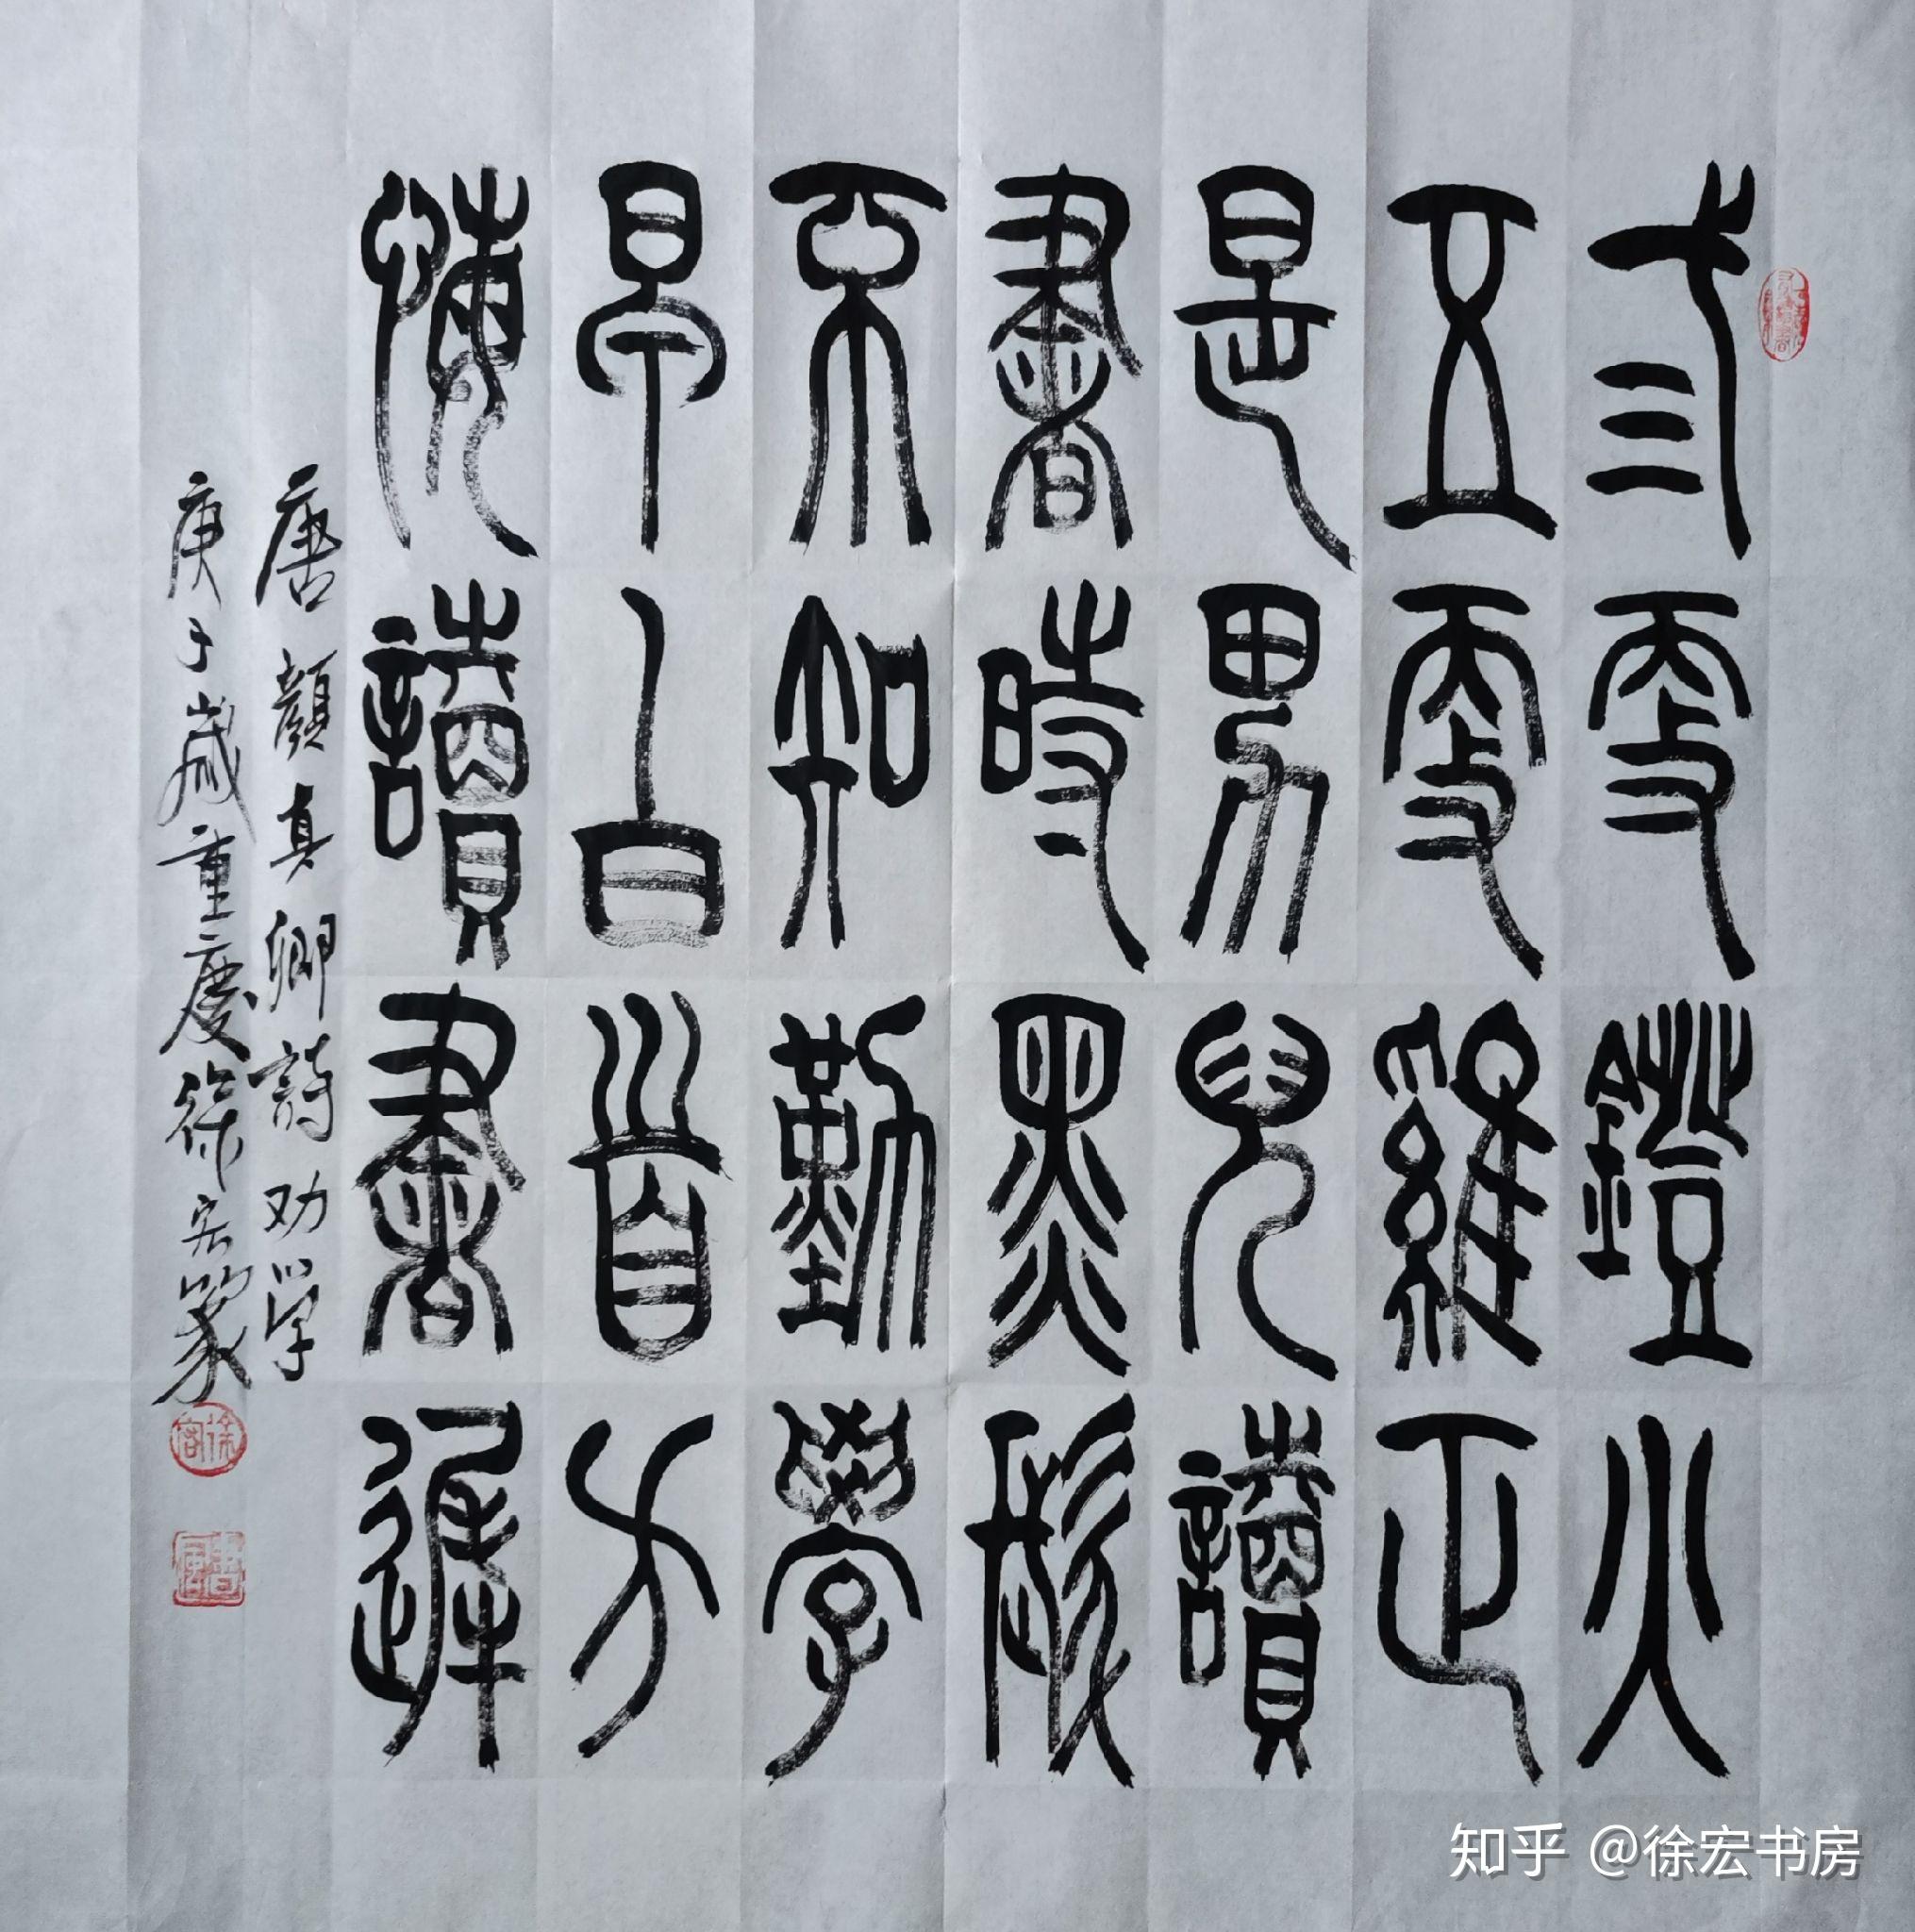 弎更鐙火
五更雞正
是男兒讀
書時黑髮
不知勤學
早白首方
悔讀書遲
唐顏真卿詩劝学
庚子歲重慶徐宏篆
徐宏
知乎 @徐宏书房